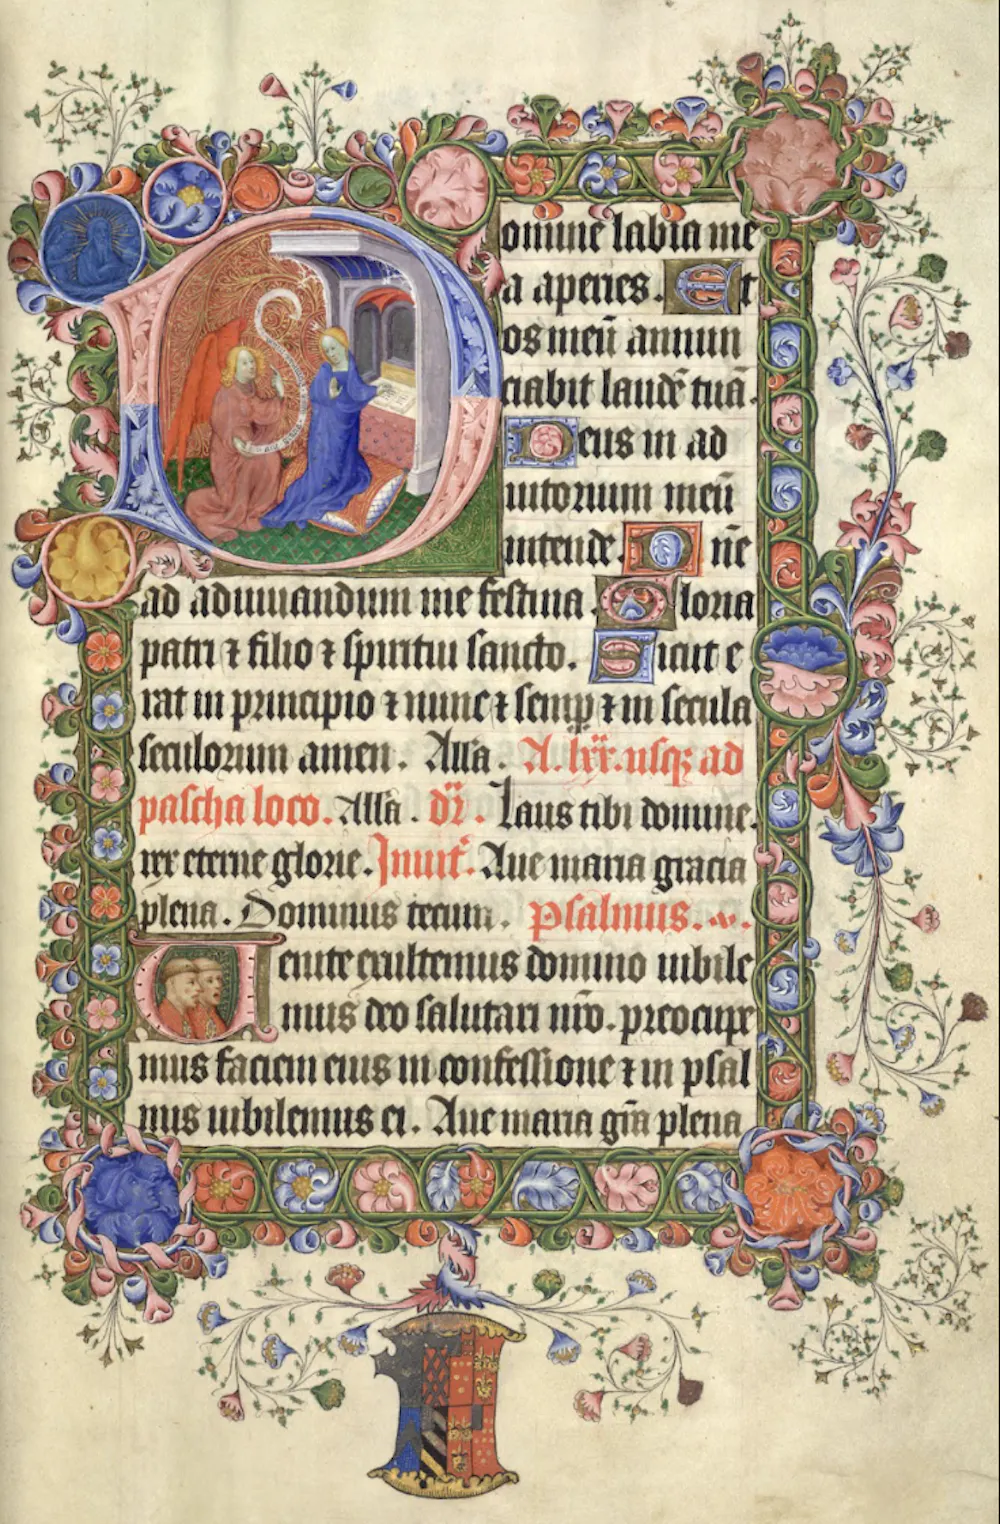 Domine labia me
a aperies. Et
os meū annun
ciabit laudē tuā.
Deus in ad
iutorium meū
intende. Dn̄e
ad adiuuandum me festina. Gloria
patri ⁊ filio ⁊ spiritui sancto. Sicut e
rat in principio ⁊ nunc ⁊ semp̱ ⁊ in secula
seculorum amen. Alla. A. lxx. usqꝫ ad
pascha loco. Alla. dr̄. Laus tibi domine.
rex eterne glorie. Inuit̄. Aue maria gracia
plena. Dominus tecum. Psalmus.
Uenite exultemus domino iubile
mus deo salutari nr̄o. preocupe
mus faciem eius in confessione ⁊ in psal
mis iubilemus ei. Aue maria gr̄a plena